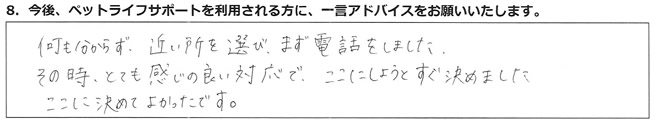 8. 今後、ペットライフサポートを利用される方に、一言アドバイスをお願いいたします。
何も分からず、近い所を選び、まず電話をしました、
その時、とても感じの良い対応で、ここにしようとすぐ決めました
ここに決めてよかったです。